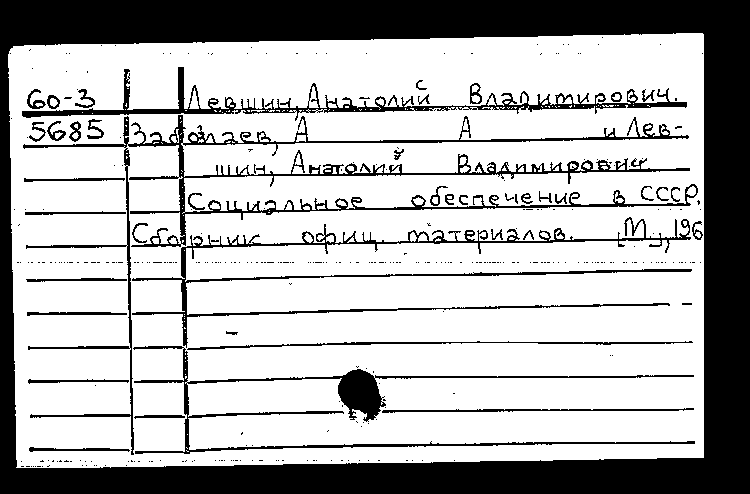 60-3 Левшин, Анатолий Владимирович.
5685 А А и Лев-
шин, Анатолий Владимирович
Социальное обеспечение в СССР.
Сборник офиц. материалов. [М.], 196